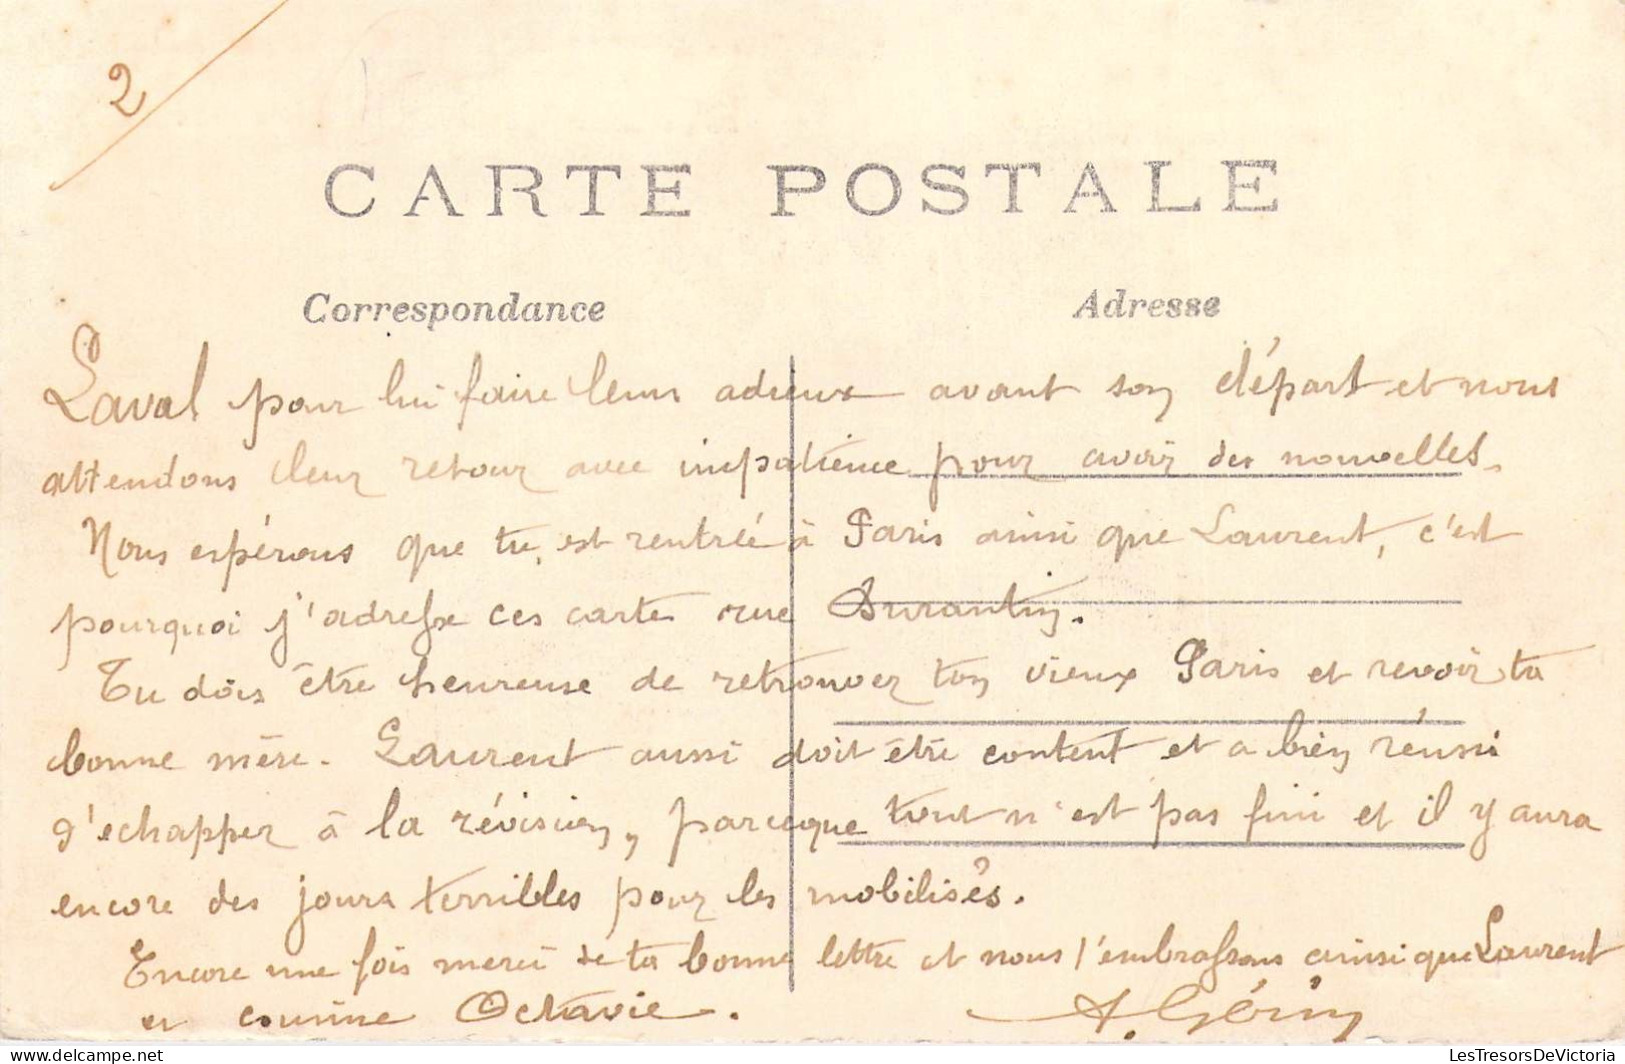 2
CARTE POSTALE
Correspondance
Adresse
Laval pour lui faire leurs adieux avant son départ et nous
attendons leur retour avec impatience pour avoir des nouvelles.
Nous espérons que tu est rentrée à Paris ainsi que Laurent, c'est
pourquoi j'adresse ces cartes rue Durantin.
Tu dois être heureuse de retrouver ton vieux Paris et revoir ta
bonne mère. Laurent aussi doit être content et a bien réussi
d'echapper à la révision, parceque tout n'est pas fini et il y aura
encore des jours terribles pour les mobilisés.
Encore une fois merci de ta bonne lettre et nous t'embrassons ainsi que Laurent
et cousine Octavie.
A. Gérin
LesTresorsDeVictoria